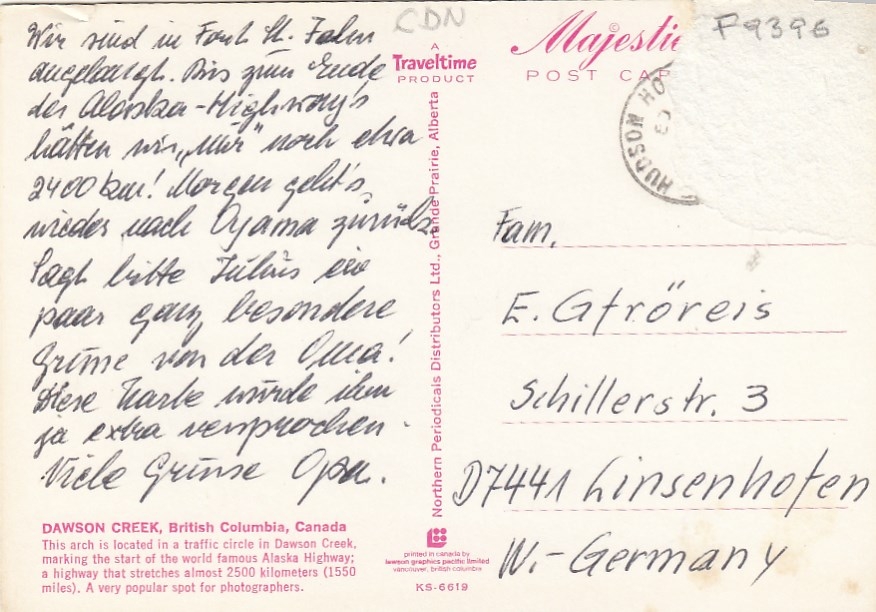 CDN
F9396
Wir sind in Fort St. John
angelangt. Bis zum Ende
des Alaska-Highway's
hätten wir „nur" noch etwa
2400 km! Morgen geht's
wieder nach Oyama zurück.
Sagt bitte Julius ein
paar ganz besondere
Grüsse von der Oma!
Diese Karte wurde ihm
ja extra versprochen.
Viele Grüsse Opa.
DAWSON CREEK, British Columbia, Canada
This arch is located in a traffic circle in Dawson Creek,
marking the start of the world famous Alaska Highway;
a highway that stretches almost 2500 kilometers (1550
miles). A very popular spot for photographers.
A
Traveltime
PRODUCT
Northern Periodicals Distributors Ltd., Grande Prairie, Alberta
printed in canada by
lawson graphics pacific limited
vancouver, british columbia
KS-6619
©
Majestic
POST CAR
HUDSON HO
Fam.
E. Gfröreis
Schillerstr. 3
D7441 Linsenhofen
W.-Germany